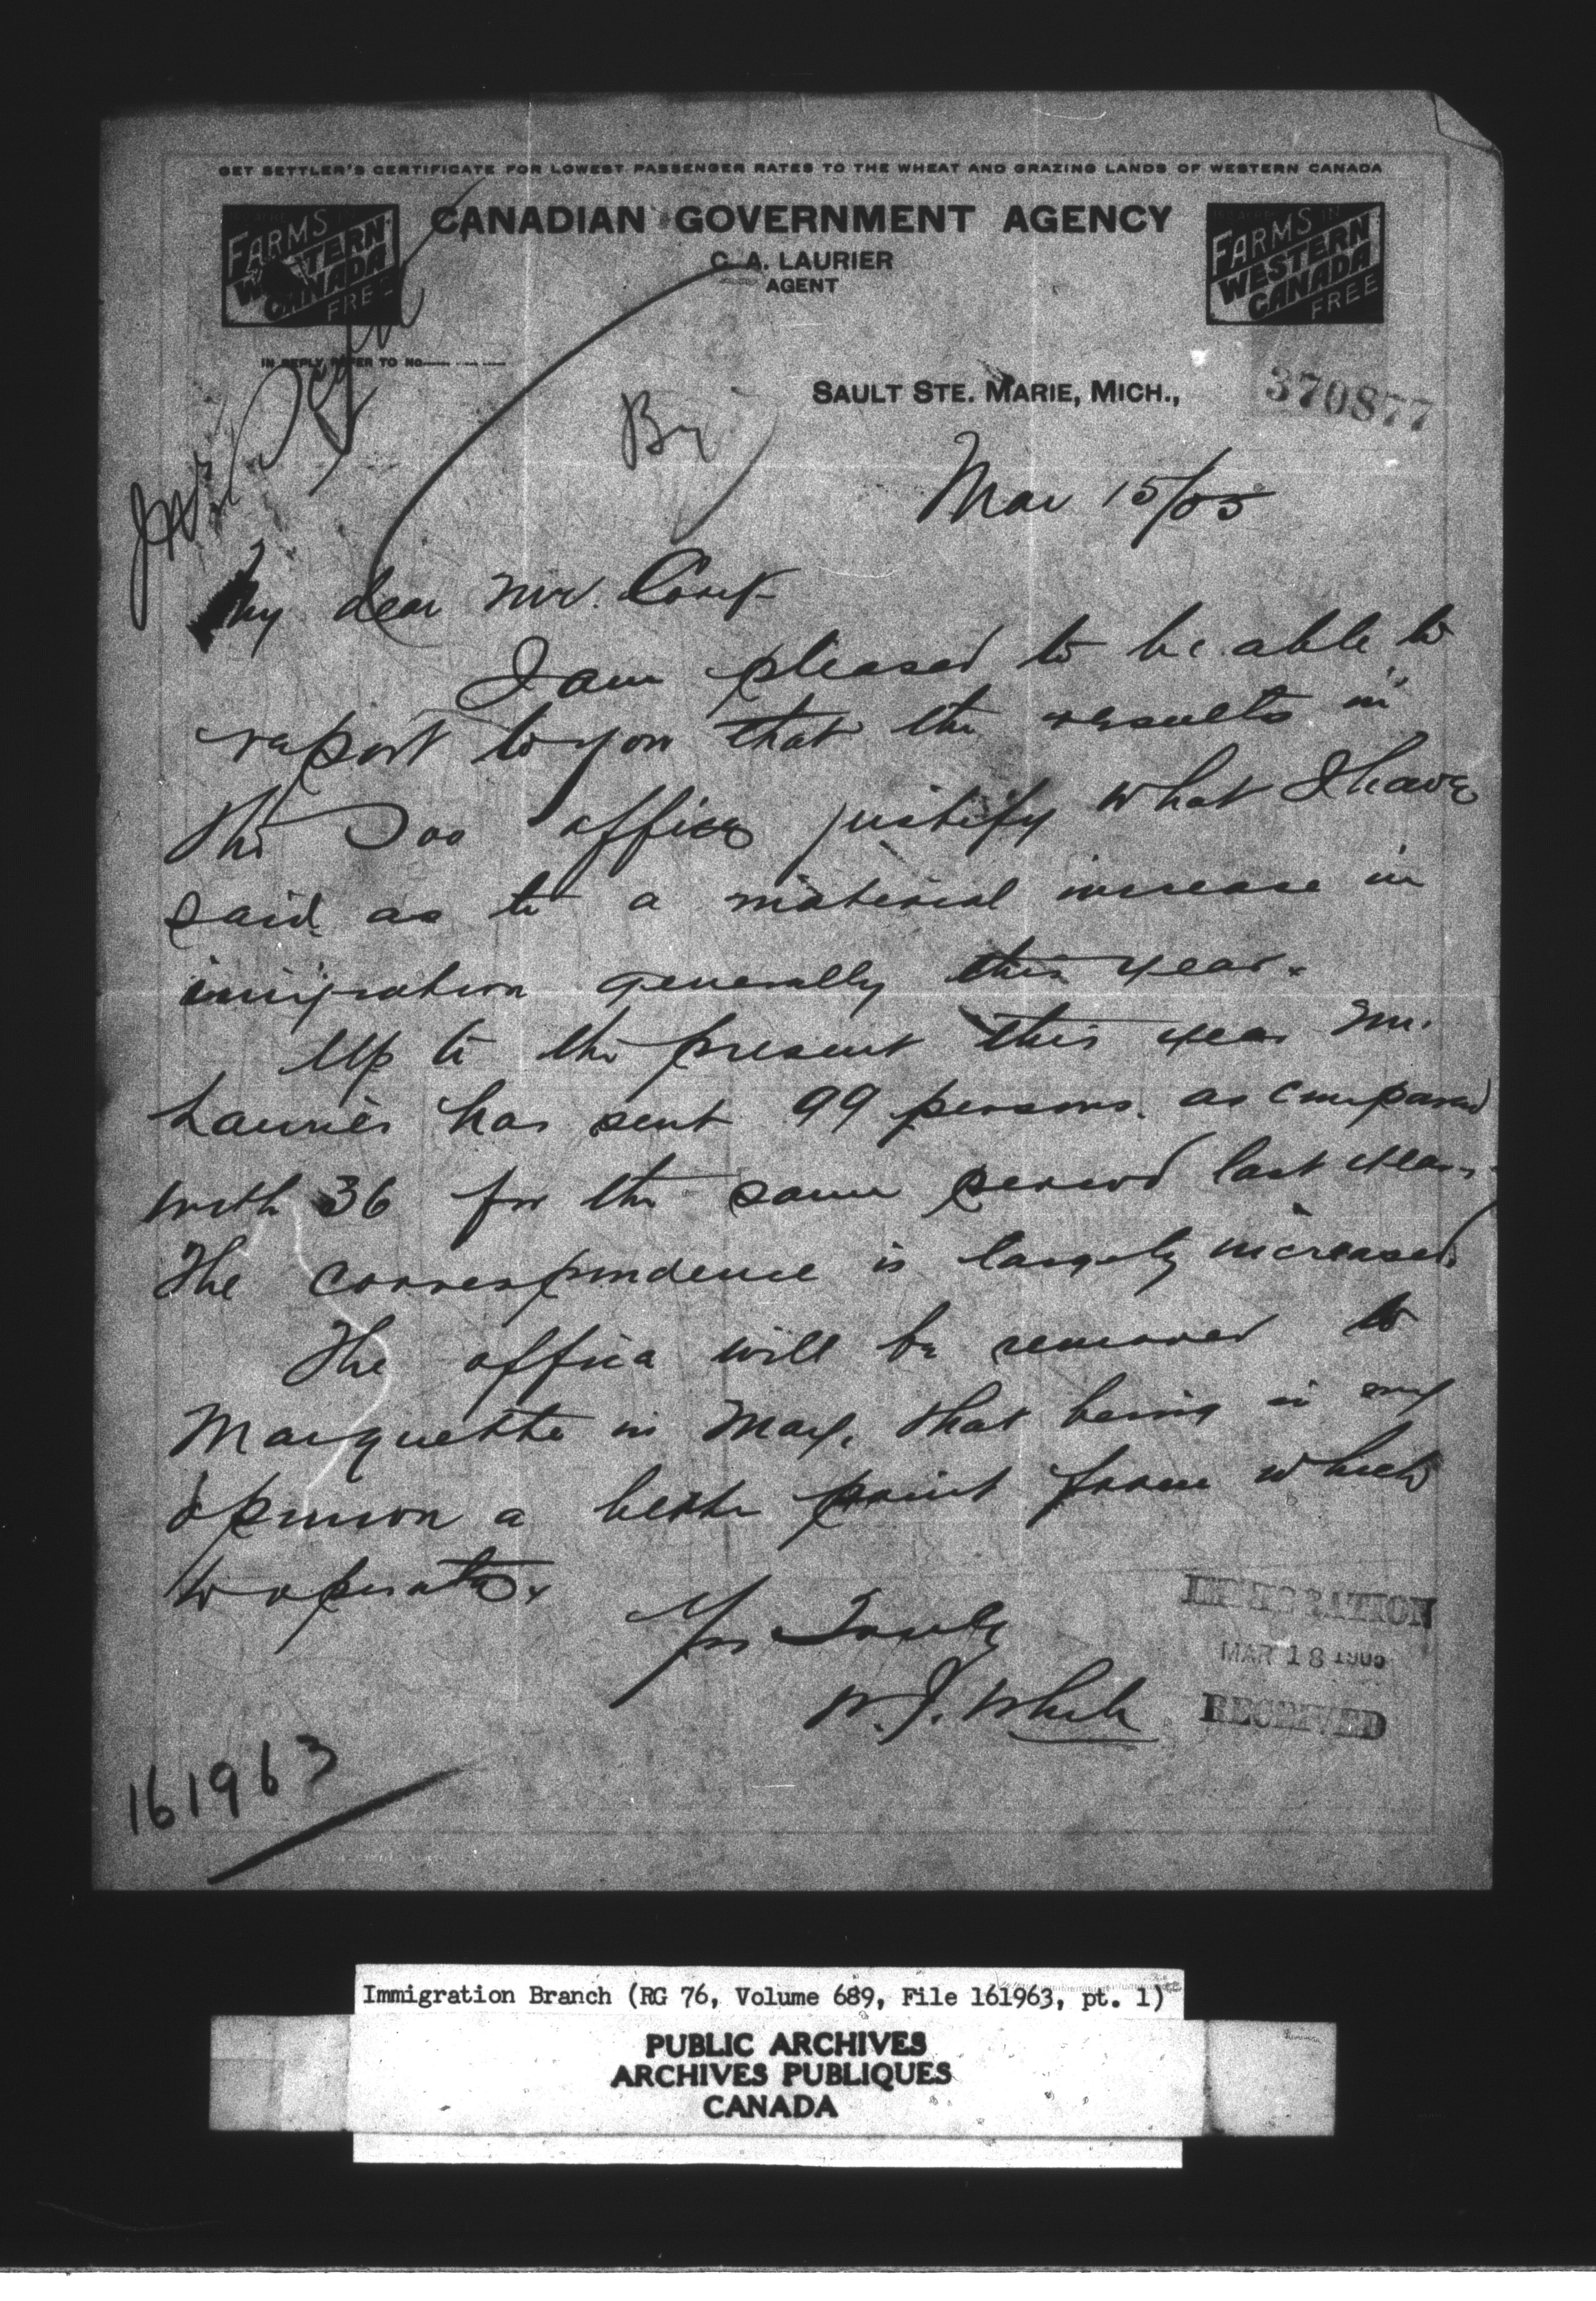 GET SETTLER'S CERTIFICATE FOR LOWEST PASSENGER RATES TO THE WHEAT AND GRAZING LANDS OF WESTERN CANADA
FARMS IN WESTERN CANADA FREE
CANADIAN GOVERNMENT AGENCY
C. A. LAURIER
AGENT
FARMS IN WESTERN CANADA FREE
IN REPLY REFER TO No
SAULT STE. MARIE, MICH.,
370877
Mar 15/05
My dear Mr. Cory
I am pleased to be able to
report to you that the results in
the Soo office justify what I have
said as to a material increase in
immigration generally this year.
Up to the present this year Mr.
Laurier has sent 99 persons as compared
with 36 for the same period last year.
The correspondence is largely increased.
The office will be removed to
Marquette in May, that being in my
opinion a better point from which
to operate.
Yrs Truly
W. J. White
IMMIGRATION
MAR 18 1905
RECEIVED
161963
Immigration Branch (RG 76, Volume 689, File 161963, pt. 1)
PUBLIC ARCHIVES
ARCHIVES PUBLIQUES
CANADA